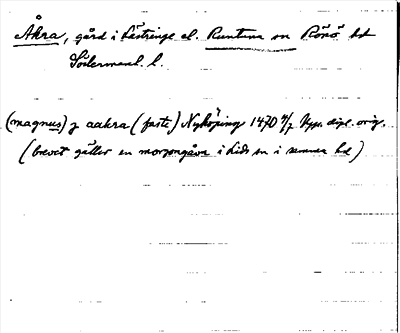 Åkra, gård i Lästringe el. Runtuna sn Rönö hd
Södermanl. l.
(magnus) j aakra (faste) Nyköping 1470 4/7 Upps. dipl. orig.
(brevet gäller en morgongåva i Lids sn i samma hd)